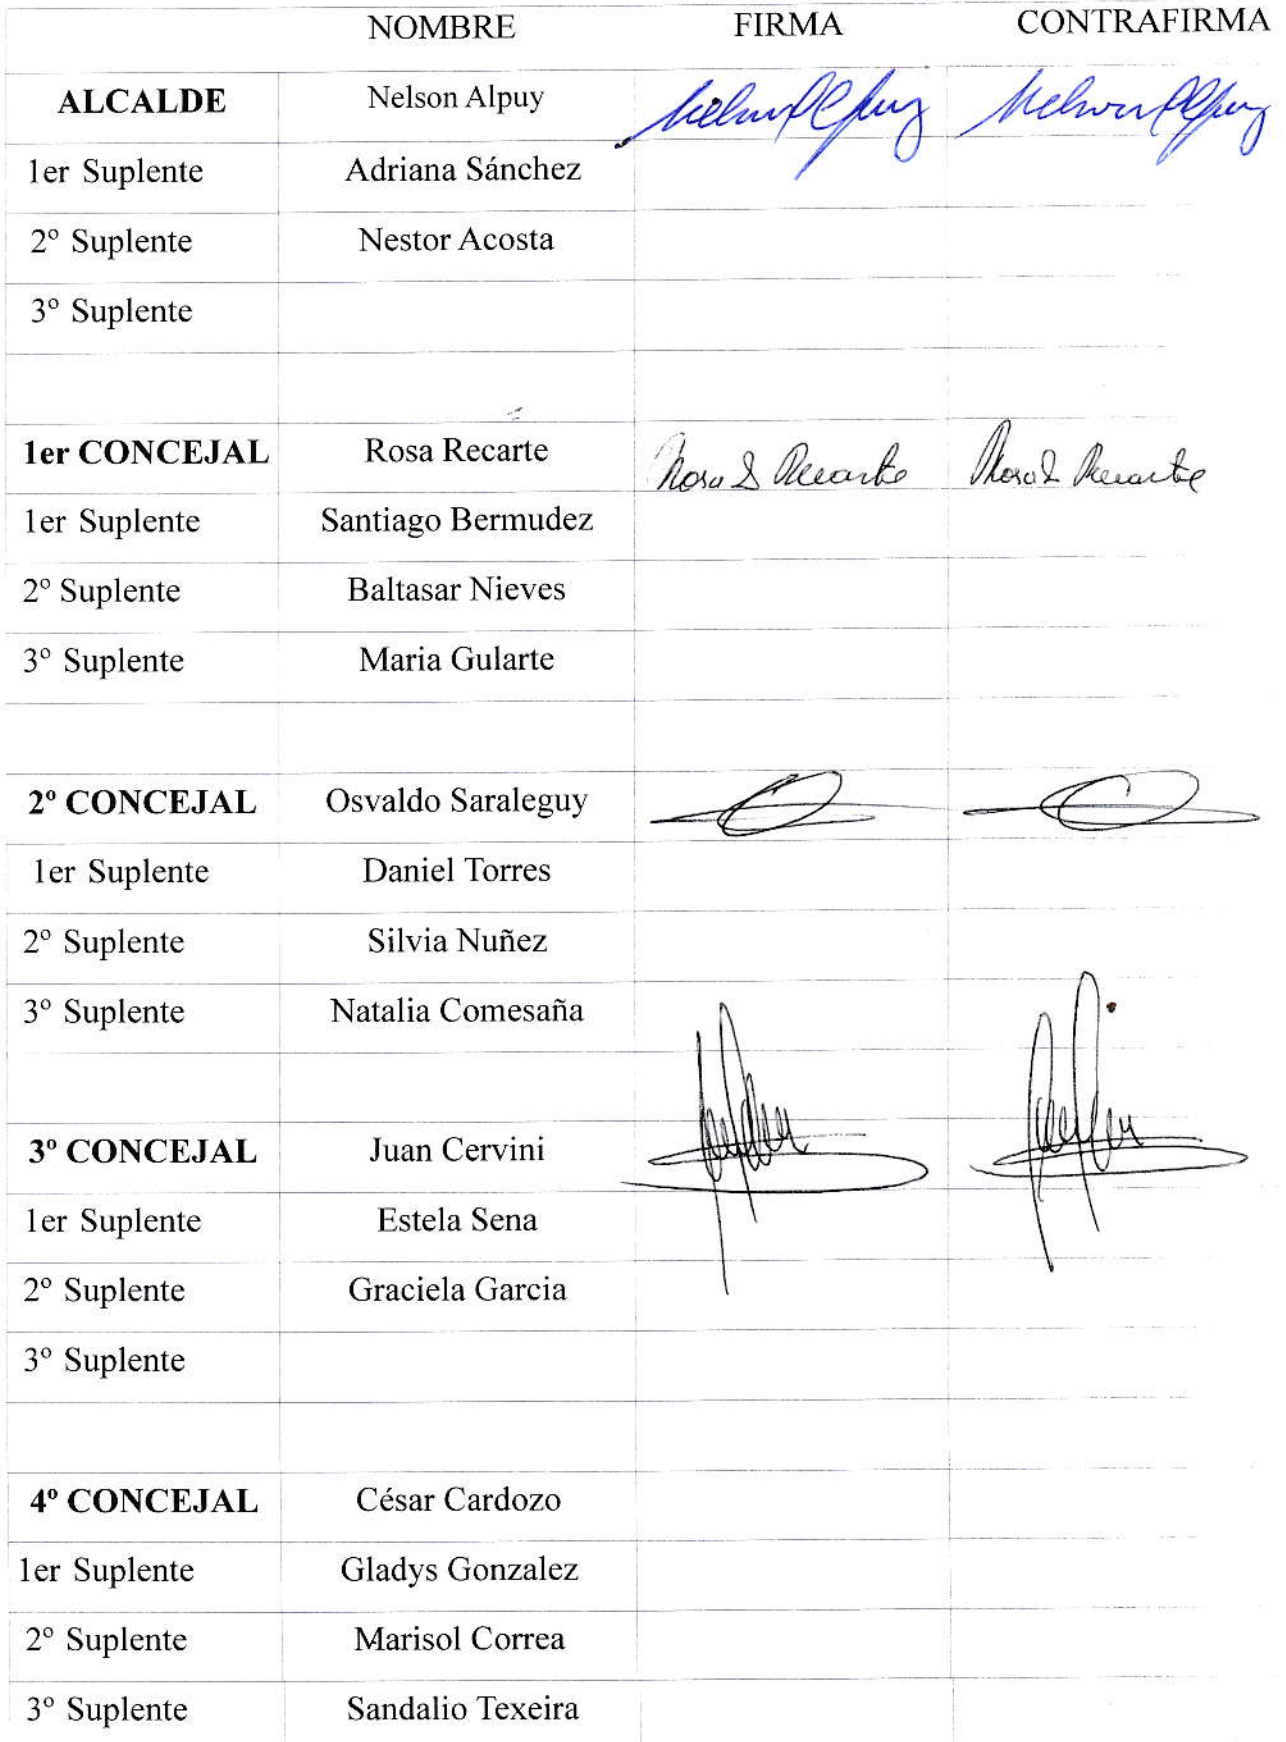 NOMBRE FIRMA CONTRAFIRMA
ALCALDE Nelson Alpuy Nelson Alpuy Nelson Alpuy
1er Suplente Adriana Sánchez
2º Suplente Nestor Acosta
3º Suplente
1er CONCEJAL Rosa Recarte Rosa Recarte Rosa Recarte
1er Suplente Santiago Bermudez
2º Suplente Baltasar Nieves
3º Suplente Maria Gularte
2º CONCEJAL Osvaldo Saraleguy
1er Suplente Daniel Torres
2º Suplente Silvia Nuñez
3º Suplente Natalia Comesaña
3º CONCEJAL Juan Cervini
1er Suplente Estela Sena
2º Suplente Graciela Garcia
3º Suplente
4º CONCEJAL César Cardozo
1er Suplente Gladys Gonzalez
2º Suplente Marisol Correa
3º Suplente Sandalio Texeira